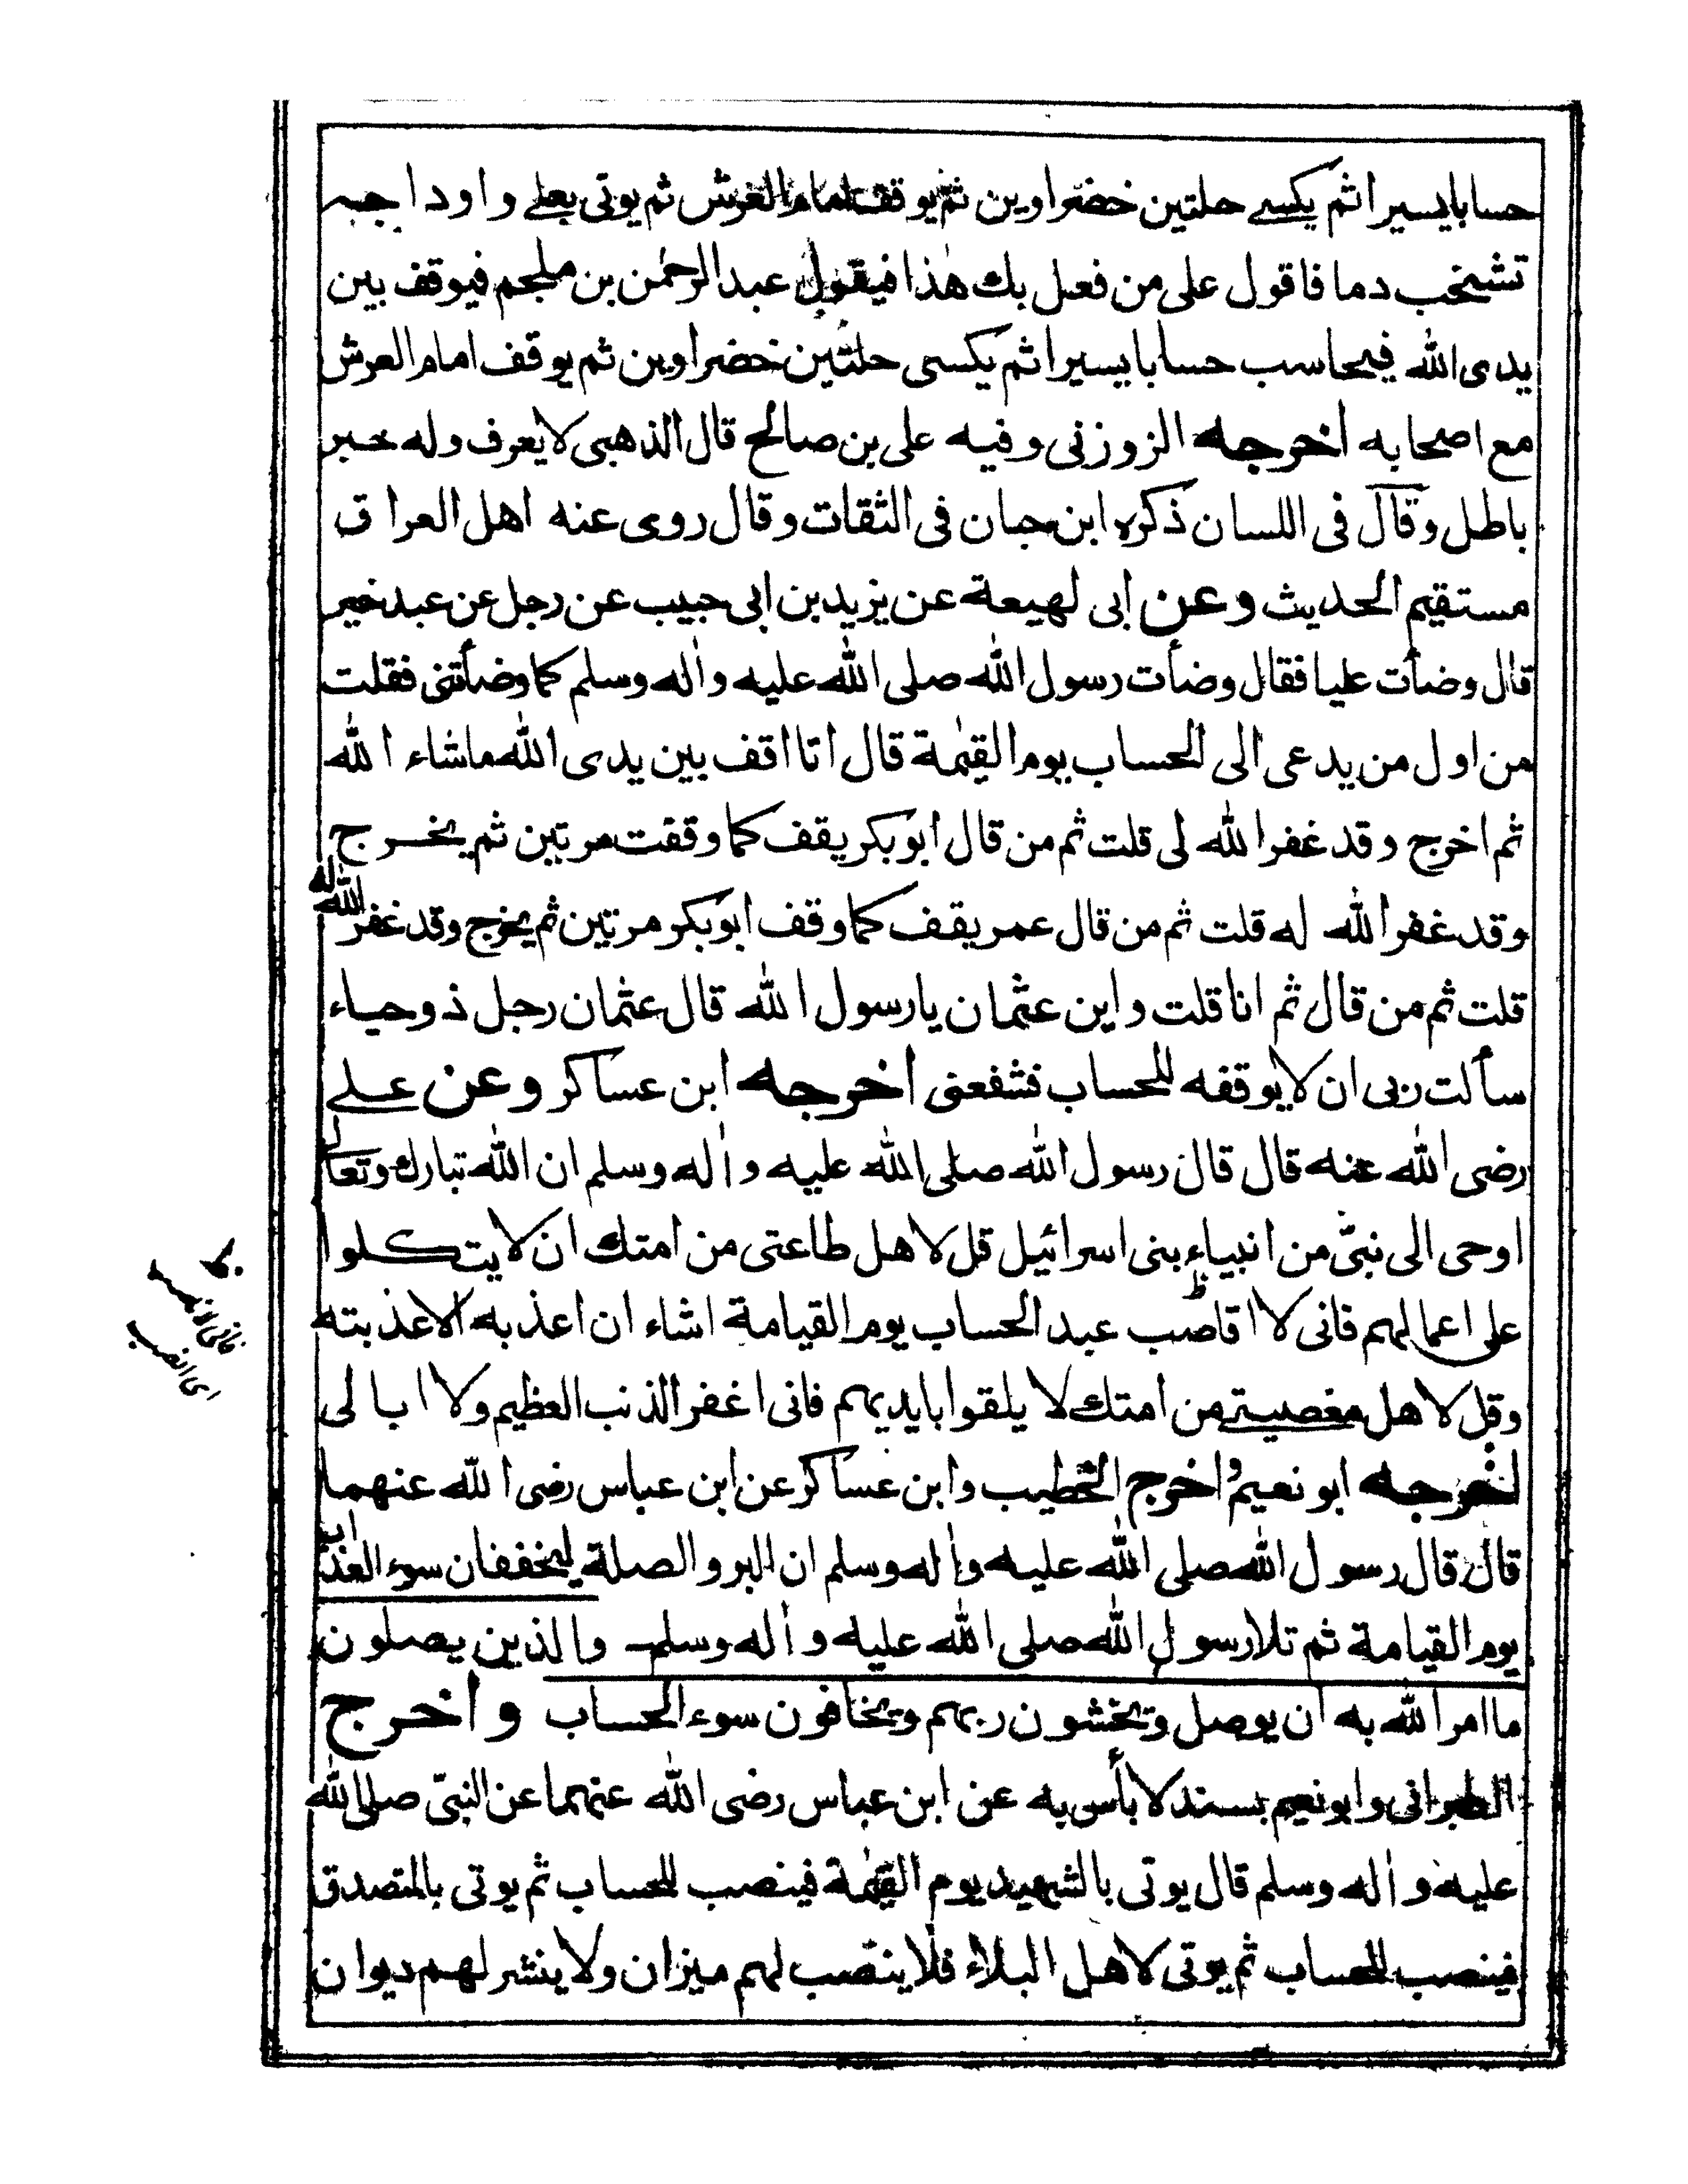 حسابا يسيرا ثم يكسے حلتين خضراوين ثم يوقف امام العرش ثم يوتى بعلے واوداجه
تشخب دما فاقول على من فعل بك هٰذا فيقول عبد الرحمٰن بن ملجم فيوقف بين
يدى الله فيحاسب حسابا يسيرا ثم يكسى حلتين خضراوين ثم يوقف امام العرش
مع اصحابه اخرجه الزوزنى وفيه على بن صالح قال الذهبى لا يعرف وله خبر
باطل وقال فى اللسان ذكره ابن حبان فى الثقات وقال روى عنه اهل العراق
مستقيم الحديث وعن ابى لهيعة عن يزيد بن ابى حبيب عن رجل عن عبد خير
قال وضأت عليا فقال وضأت رسول الله صلى الله عليه واٰله وسلم كما وضأتنى فقلت
من اول من يدعى الى الحساب يوم القيٰمة قال انا اقف بين يدى الله ماشاء الله
ثم اخرج وقد غفر الله لى قلت ثم من قال ابو بكر يقف كما وقفت مرتين ثم يخرج
وقد غفر الله له قلت ثم من قال عمر يقف كما وقف ابو بكر مرتين ثم يخرج وقد غفر الله له
قلت ثم من قال ثم انا قلت واين عثمان يا رسول الله قال عثمان رجل ذو حياء
سألت ربى ان لا يوقفه للحساب فشفعنى اخرجه ابن عساكر وعن علے
رضى الله عنه قال قال رسول الله صلى الله عليه واٰله وسلم ان الله تبارك وتعالى
اوحى الى نبىّ من انبياء بنى اسرائيل قل لاهل طاعتى من امتك ان لا يتكلوا
على اعمالهم فانى لا اقاصب عبد الحساب يوم القيامة اشاء ان اعذبه الا عذبته
وقل لاهل معصيتے من امتك لا يلقوا بايديهم فانى اغفر الذنب العظيم ولا ابالى
اخرجه ابو نعيم واخرج الخطيب وابن عساكر عن ابن عباس رضى الله عنهما
قال قال رسول الله صلى الله عليه واٰله وسلم ان البر والصلة ليخففان سوء العذاب
يوم القيامة ثم تلا رسول الله صلى الله عليه واٰله وسلم والذين يصلون
ما امر الله به ان يوصل ويخشون ربهم ويخافون سوء الحساب واخرج
الطبرانى وابو نعيم بسند لا بأس به عن ابن عباس رضى الله عنهما عن النبىّ صلى الله
عليه واٰله وسلم قال يوتى بالشهيد يوم القيٰمة فينصب للحساب ثم يوتى بالمتصدق
فينصب للحساب ثم يوتى لاهل البلاء فلا ينصب لهم ميزان ولا ينشر لهم ديوان